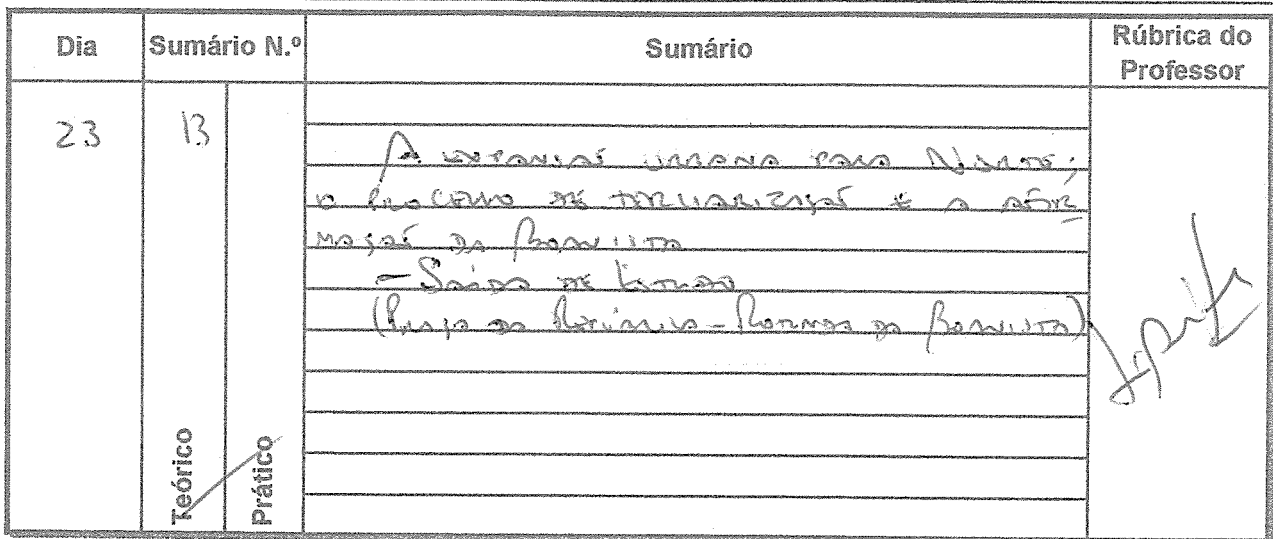 Dia Sumário N.º Sumário Rúbrica do Professor
23 13
A expansão urbana para Norte;
o processo de terciarização e a afir
mação da Boavista
- Saída de Estudo
(Praça da República - Rotunda da Boavista)
Teórico
Prático